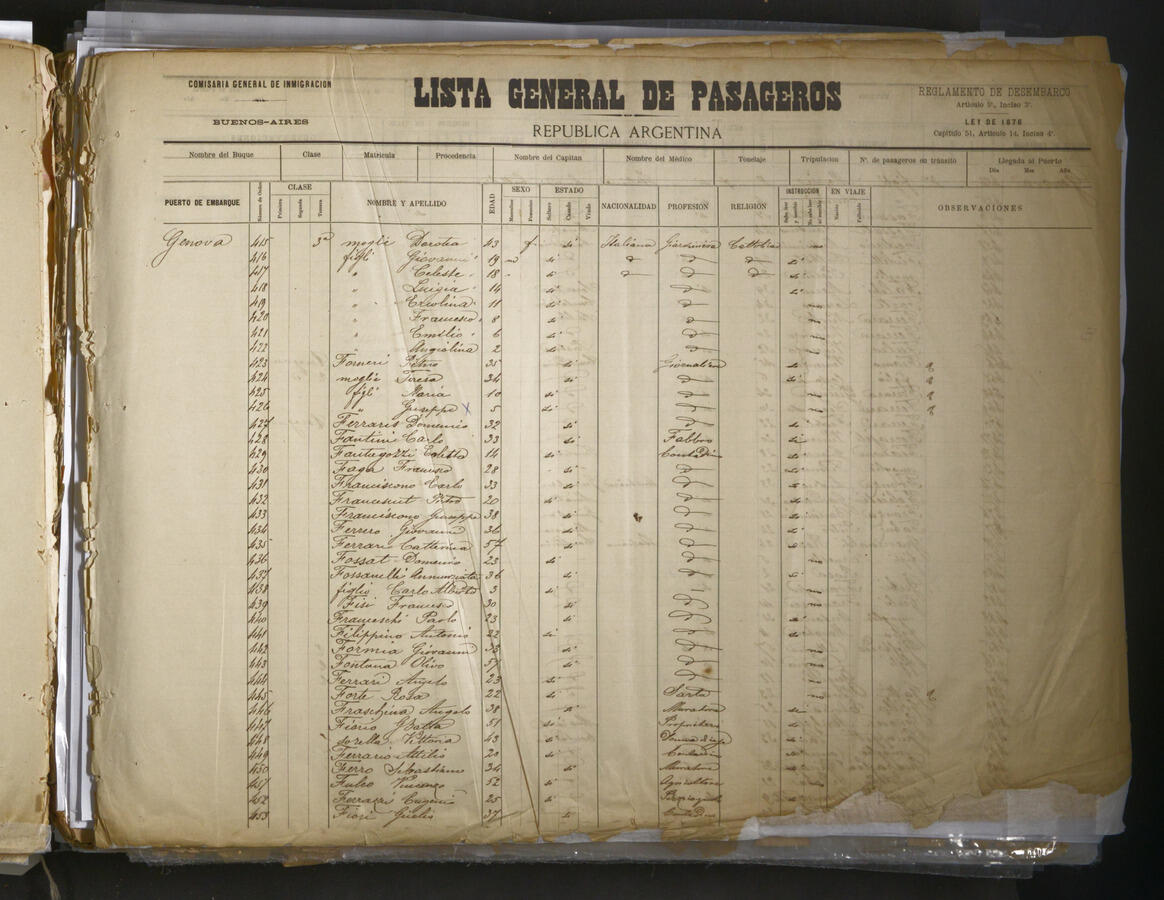 COMISARIA GENERAL DE INMIGRACION
BUENOS-AIRES
LISTA GENERAL DE PASAGEROS
REPUBLICA ARGENTINA
REGLAMENTO DE DESEMBARCO
Artículo 9º, Inciso 3º.
LEY DE 1876
Capítulo 51, Artículo 14, Inciso 4º.
Nombre del Buque Clase Matrícula Procedencia Nombre del Capitan Nombre del Médico Tonelaje Tripulacion Nº. de pasageros en tránsito Llegada al Puerto
Día Mes Año
PUERTO DE EMBARQUE Número de Orden CLASE Primera Segunda Tercera NOMBRE Y APELLIDO EDAD SEXO Masculino Femenino ESTADO Soltero Casado Viudo NACIONALIDAD PROFESIÓN RELIGIÓN INSTRUCCIÓN Sabe leer y escribir No sabe leer ni escribir EN VIAJE Nacido Fallecido OBSERVACIONES
Genova 415 3a moglie Dorotea 43 f si Italiana Giardiniera Cattolica no
416 figli Giovanni 19 si
417 " Celeste 18 si
418 " Luigia 14 si
419 " Ercolina 11 si no
420 " Francesco 8 si no
421 " Emilio 6 si
422 " Angiolina 2 si
423 Forneri Pietro 35 si Giornaliero si
424 moglie Teresa 34 si si
425 figli Maria 10 si
426 " Giuseppe x 5 si
427 Ferraris Domenico 32 si si
428 Fantini Carlo 33 si Fabbro si
429 14 si Contadino si
430 Faga Francesco 28 si si
431 Franciscono Carlo 33 si si
432 Pietro 20 si si
433 Franciscono Giuseppe 38 si si
434 Ferrero Giovanni 36 si si
435 Ferrari Catterina 57 si si
436 Fossat Domenico 23 si no
437 Fossanelli Annunziata 36 si si
438 figlio Carlo Alberto 3 si no
439 Fisi Francesco 30 si no
440 Franceschi Paolo 23 si si
441 Filippino Antonio 22 si si
442 Formia Giovanni si
443 Fontana Olivo 57 si
444 Ferrari Angelo 23 si
445 Forte Rosa 22 si Sarta no
446 Fraschina Angelo 38 si Muratore si
447 Fiorio Batta 51 si Proprietario si
448 sorella Vittoria 43 si si
449 Ferrario Attilio 20 si Contadino si
450 Ferro Sebastiano 34 si Muratore si
451 Vincenzo 52 si Agricoltore no
452 Eugenio 25 si si
453 Fiori 37 si Contadino no